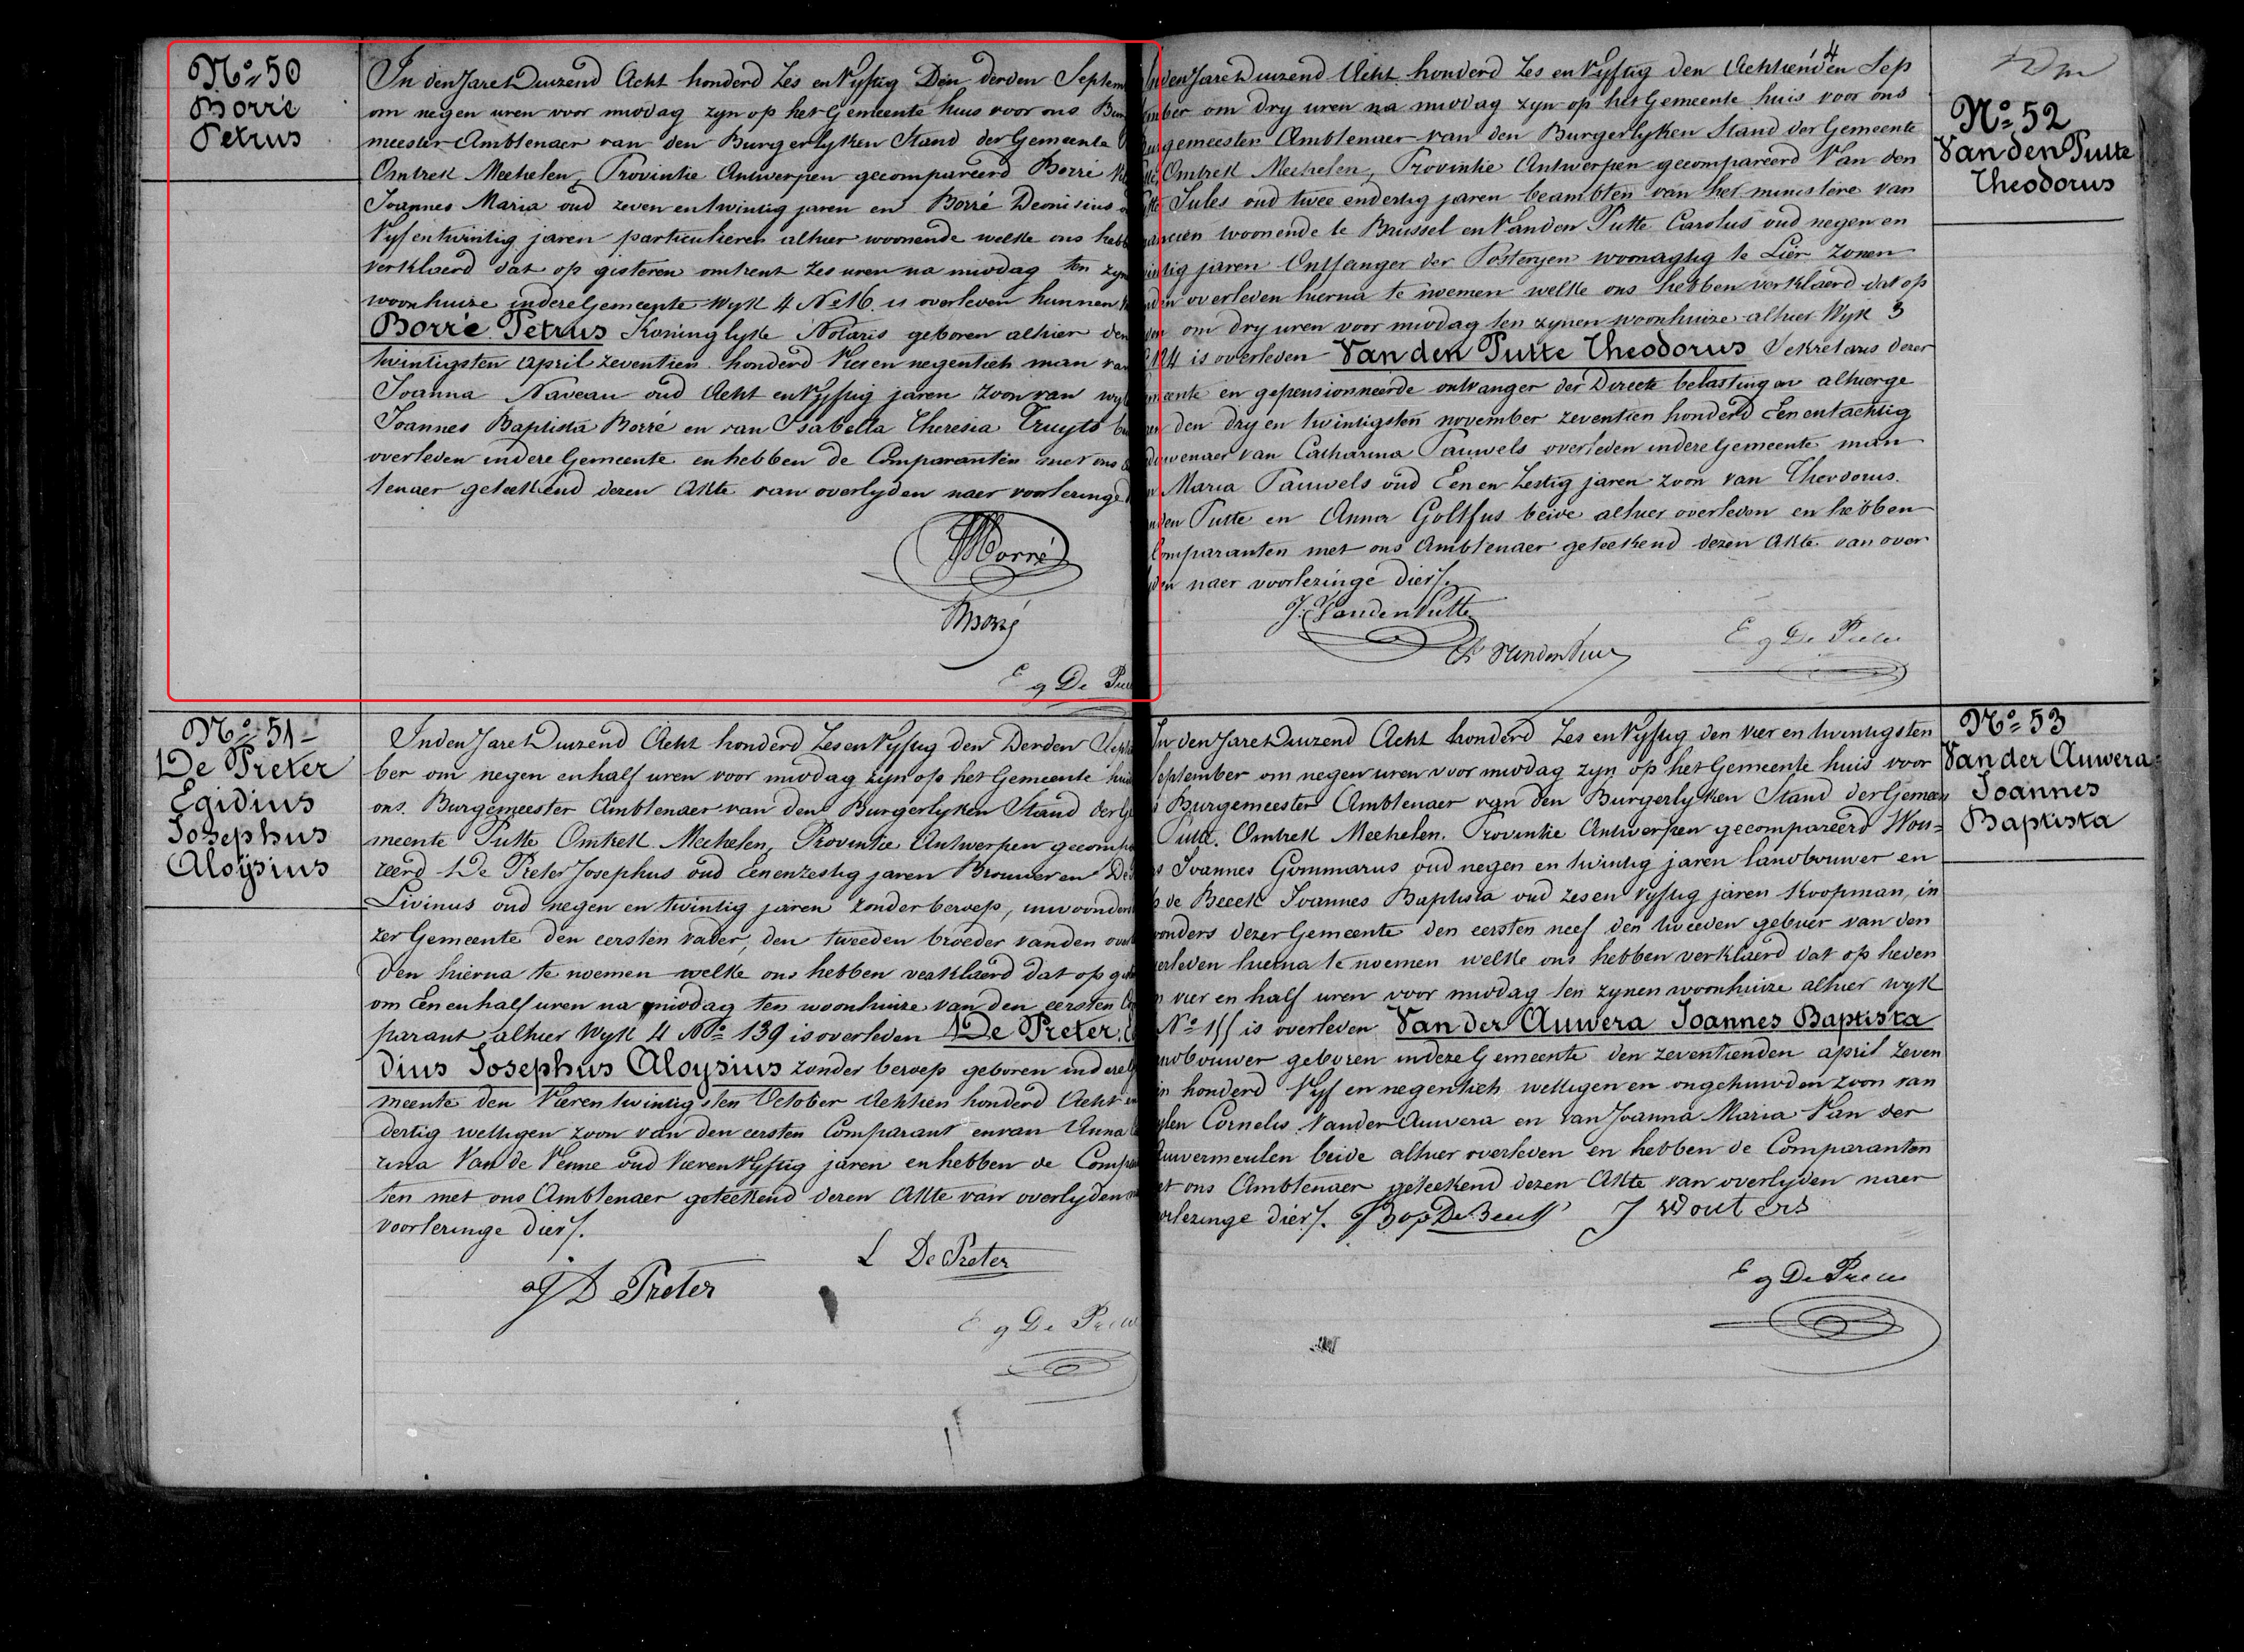 No 50
Borré
Petrus
In den Jare Duizend Acht honderd Zes en Vyftig Den derden Septem
om negen uren voor middag zyn op het Gemeente huis voor ons Bur
meester Ambtenaer van den Burgerlyken Stand der Gemeente
Omtrek Mechelen, Provintie Antwerpen gecompareerd Borré
Joannes Maria oud zeven en twintig jaren en Borré Deonisius
Vyf en twintig jaren particulieren alhier woonende welke ons hebb
verklaerd dat op gisteren omtrent zes uren na middag ten zyn
woonhuize in deze Gemeente Wyk 4 No 16 is overleden hunnen
Borré Petrus Koninglyke Notaris geboren alhier den
twintigsten April zeventien honderd Vier en negentich man van
Joanna Naveau oud Acht en Vyftig jaren zoon van wyl
Joannes Baptista Borré en van Isabella Theresia Truyts
overleden in deze Gemeente en hebben de Comparanten met ons
tenaer geteekend dezen Akte van overlyden naer voorlezinge
Borré
Borré
E g De Pre
No 51
De Preter
Egidius
Josephus
Aloÿsius
In den Jare Duizend Acht honderd Zes en Vyftig den Derden Septe
ber om negen en half uren voor middag zyn op het Gemeente huis
ons Burgemeester Ambtenaer van den Burgerlyken Stand der Ge
meente Putte Omtrek Mechelen, Provintie Antwerpen gecompa
reerd De Preter Josephus oud Een en zestig jaren Brouwer en De
Livinus oud negen en twintig jaren zonder beroep, inwoonders
zer Gemeente den eersten vader, den tweeden broeder van den over
den hierna te noemen welke ons hebben verklaerd dat op gist
om Een en half uren na middag ten woonhuize van den eersten Com
parant alhier Wyk 4 No 139 is overleden De Preter
dius Josephus Aloysius zonder beroep geboren in deze Ge
meente den Vier en twintigsten October Achtien honderd Acht en
dertig wettigen zoon van den eersten Comparant en van Anna
rina Van de Venne oud Vier en Vyftig jaren en hebben de Compar
ten met ons Ambtenaer geteekend dezen Akte van overlyden
voorlezinge dier/.
L De Preter
J D Preter
E g De Pre
No 52
Van den Putte
Theodorus
4
In den Jare Duizend Acht honderd Zes en Vyftig den Achtienden Sep
ember om dry uren na middag zyn op het Gemeente huis voor ons
urgemeester Ambtenaer van den Burgerlyken Stand der Gemeente
Omtrek Mechelen, Provintie Antwerpen gecompareerd Van den
Jules oud twee en dertig jaren beambten van het ministère van
ancien woonende te Brussel en Van den Putte Carolus oud negen en
intig jaren Ontfanger der Posteryen woonagtig te Lier Zonen
den overleden hierna te noemen welke ons hebben verklaerd dat op
om dry uren voor middag ten zynen woonhuize alhier Wyk 3
124 is overleden Van den Putte Theodorus Sekretaris dezer
meente en gepensionneerde ontvanger der Directe belastingen alhier ge
en den dry en twintigsten november zeventien honderd Een en tachtig
duwenaer van Catharina Pauwels overleden in deze Gemeente man
Maria Pauwels oud Een en Zestig jaren zoon van Theodorus
nden Putte en Anna Golffus beide alhier overleden en hebben
Comparanten met ons Ambtenaer geteekend dezen Akte van over
yden naer voorlezinge dier/.
J. Vanden Putte
E g De Pre
No 53
Van der Auwera
Joannes
Baptista
In den Jare Duizend Acht honderd Zes en Vyftig den vier en twintigsten
September om negen uren voor middag zyn op het Gemeente huis voor
Burgemeester Ambtenaer van den Burgerlyken Stand der Gemeen
Putte. Omtrek Mechelen. Provintie Antwerpen gecompareerd Wou=
s Joannes Gommarus oud negen en twintig jaren landbouwer en
de Beeck Joannes Baptista oud zes en vyftig jaren Koopman, in
oonders dezer Gemeente den eersten neef den tweeden gebuer van den
verleden hierna te noemen welke ons hebben verklaerd dat op heden
vier en half uren voor middag ten zynen woonhuize alhier wyk
No 155 is overleden Van der Auwera Joannes Baptista
ndbouwer geboren in deze Gemeente den zeventienden april Zeven
n honderd Vyf en negentich wettigen en ongehuwden zoon van
ylen Cornelis Van der Auwera en van Joanna Maria Van der
auwermeulen beide alhier overleden en hebben de Comparanten
et ons Ambtenaer geteekend dezen Akte van overlyden naer
orlezinge dier/. J Wouters
E g De Pre